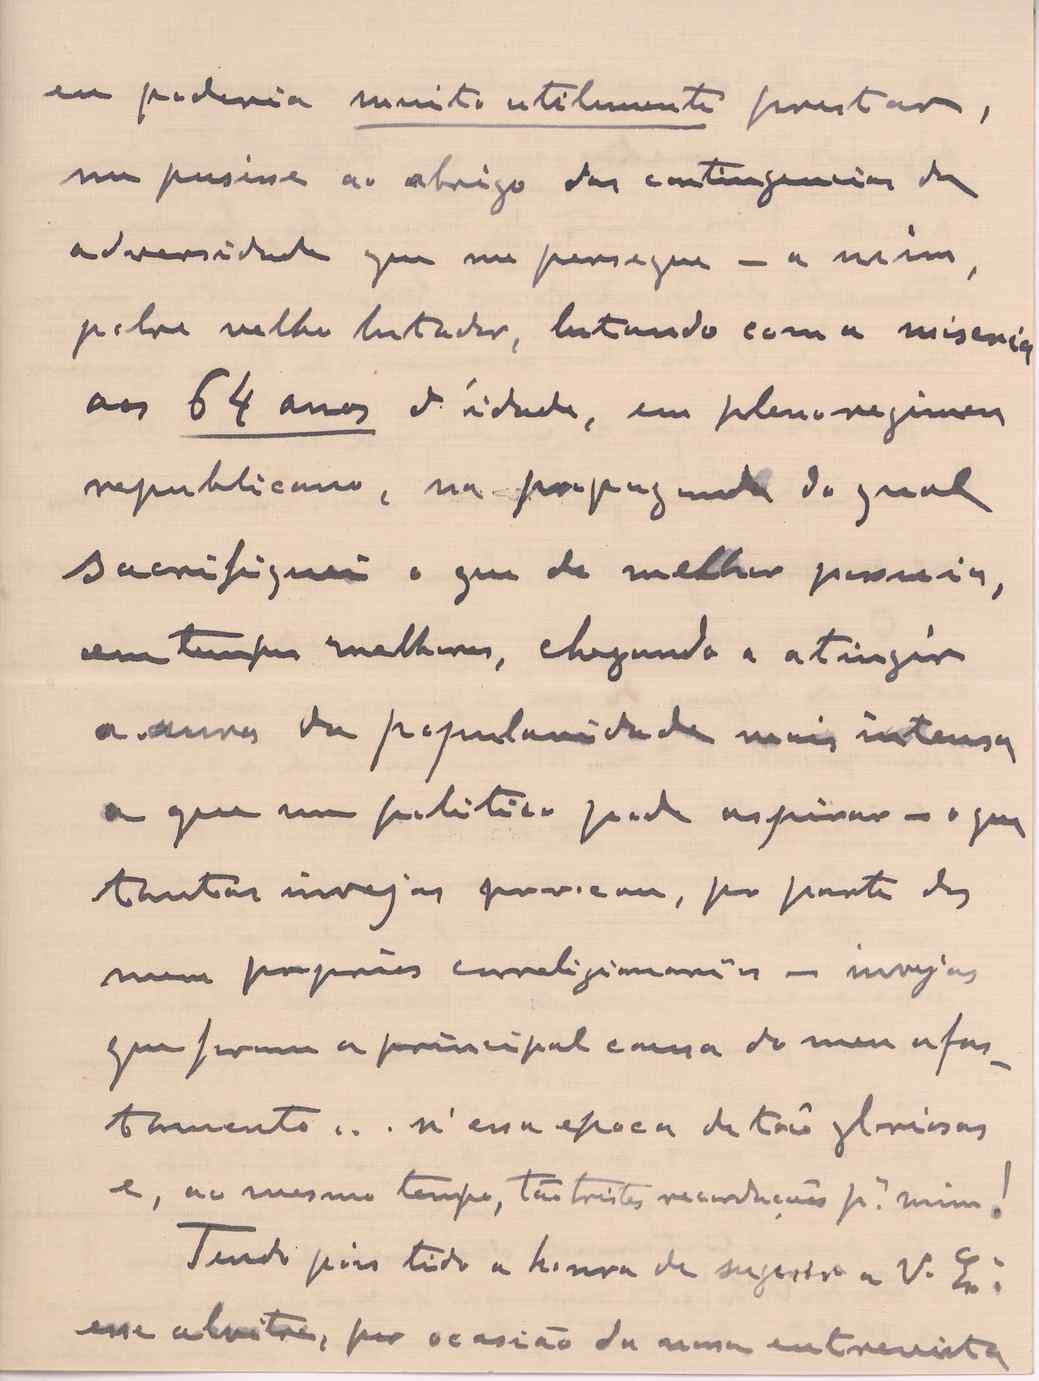 eu poderia muito utilmente prestar,
me pusesse ao abrigo das contingencias da
adversidade que me persegue – a mim,
pobre velho lutador, lutando com a miseria
aos 64 anos d'idade, em pleno regimen
republicano, na propaganda do qual
sacrifiquei o que de melhor possuia,
em tempos melhores, chegando a atingir
a aura da popularidade mais intensa
a que um politico pode aspirar – o que
tantas invejas provocou, por parte dos
meus proprios correligionarios – invejas
que foram a principal causa do meu afas-
tamento ... n'essa epoca de tão gloriosas
e, ao mesmo tempo, tão tristes recordações pª mim!
Tendo pois tido a honra de sugerir a V. Exª
esse alvitre, por ocasião da nossa entrevista